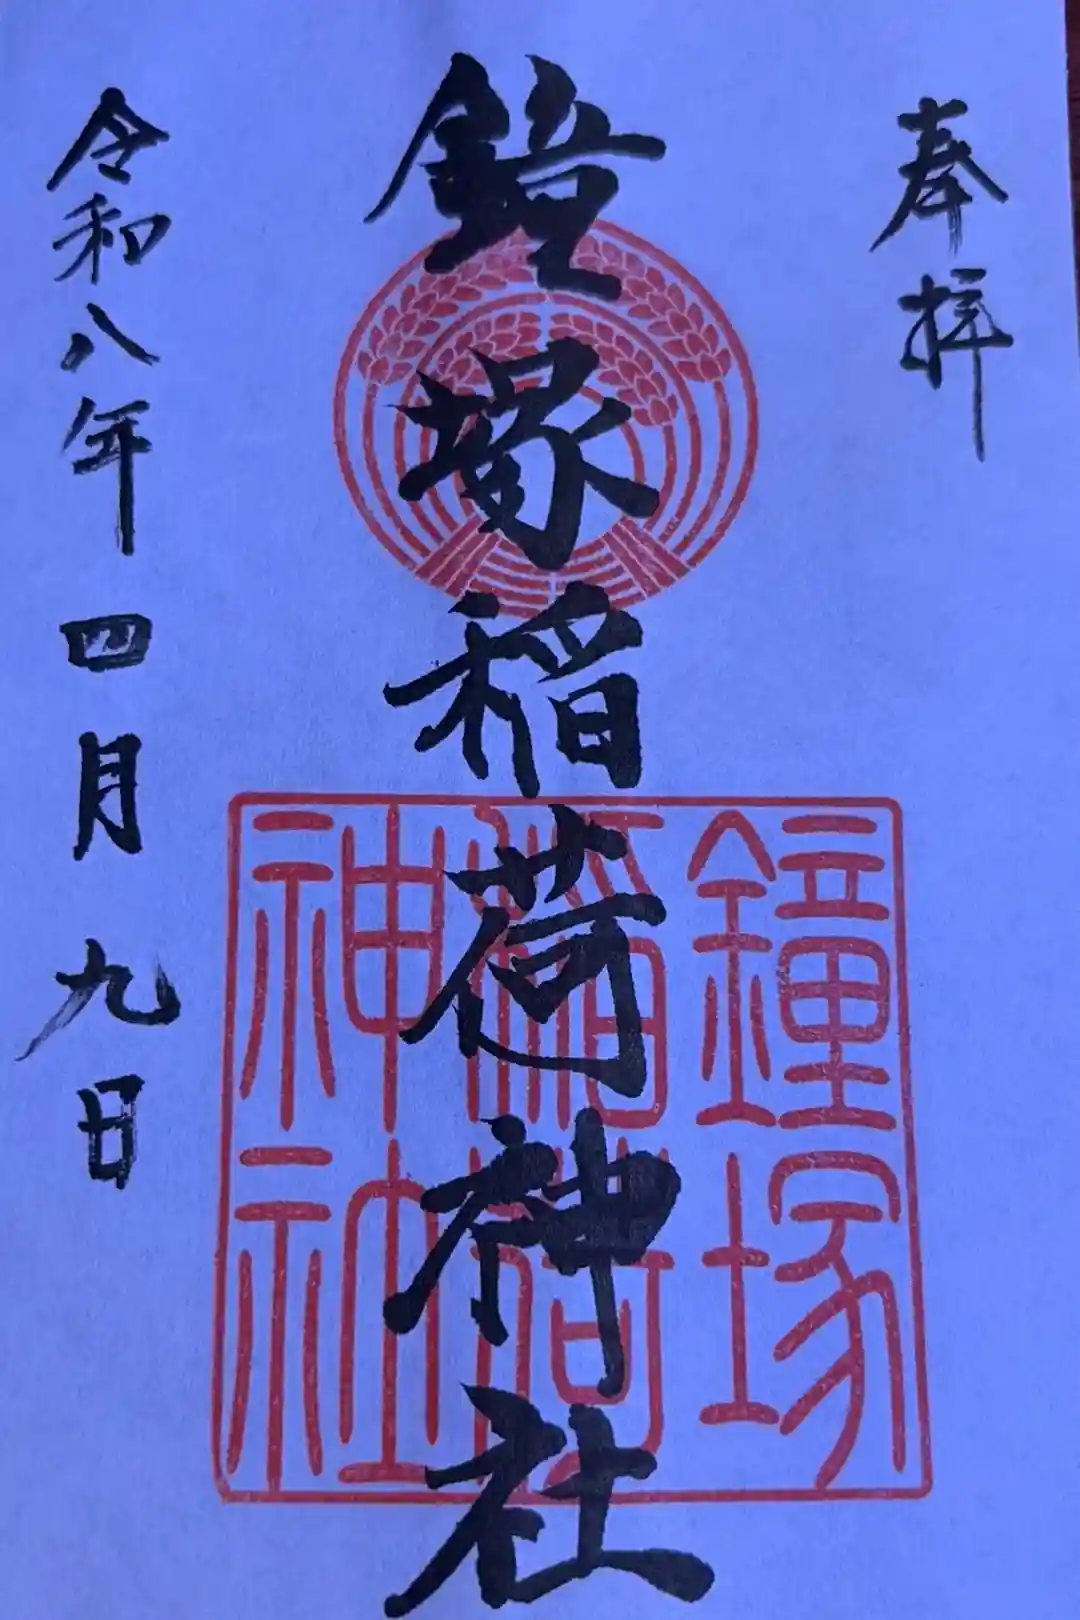 奉拝
鐘塚稲荷神社
鐘塚
稲荷
神社
令和八年四月九日